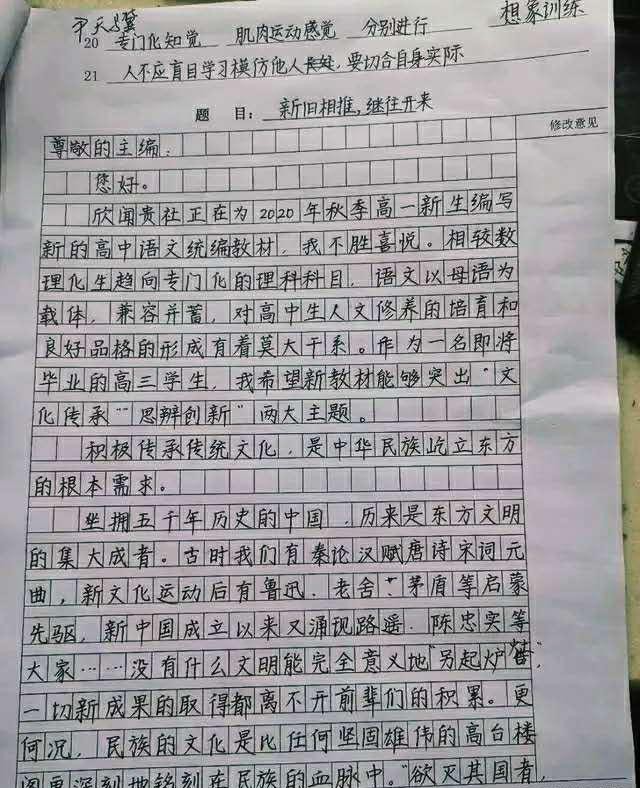 尹天戈
20 专门化知觉 肌肉运动感觉 分别进行 想象训练
21 人不应盲目学习模仿他人长处，要切合自身实际
题 目：新旧相推，继往开来
修改意见
尊敬的主编：
您好。
欣闻贵社正在为2020年秋季高一新生编写
新的高中语文统编教材，我不胜喜悦。相较数
理化生趋向专门化的理科科目，语文以母语为
载体，兼容并蓄，对高中生人文修养的培育和
良好品格的形成有着莫大干系。作为一名即将
毕业的高三学生，我希望新教材能够突出“文
化传承”“思辨创新”两大主题。
积极传承传统文化，是中华民族屹立东方
的根本需求。
坐拥五千年历史的中国，历来是东方文明
的集大成者。古时我们有秦论汉赋唐诗宋词元
曲，新文化运动后有鲁迅、老舍、茅盾等启蒙
先驱，新中国成立以来又涌现路遥、陈忠实等
大家……没有什么文明能完全意义地“另起炉灶”，
一切新成果的取得都离不开前辈们的积累。更
何况，民族的文化是比任何坚固雄伟的高台楼
阁更深刻地铭刻在民族的血脉中。“欲灭其国者，